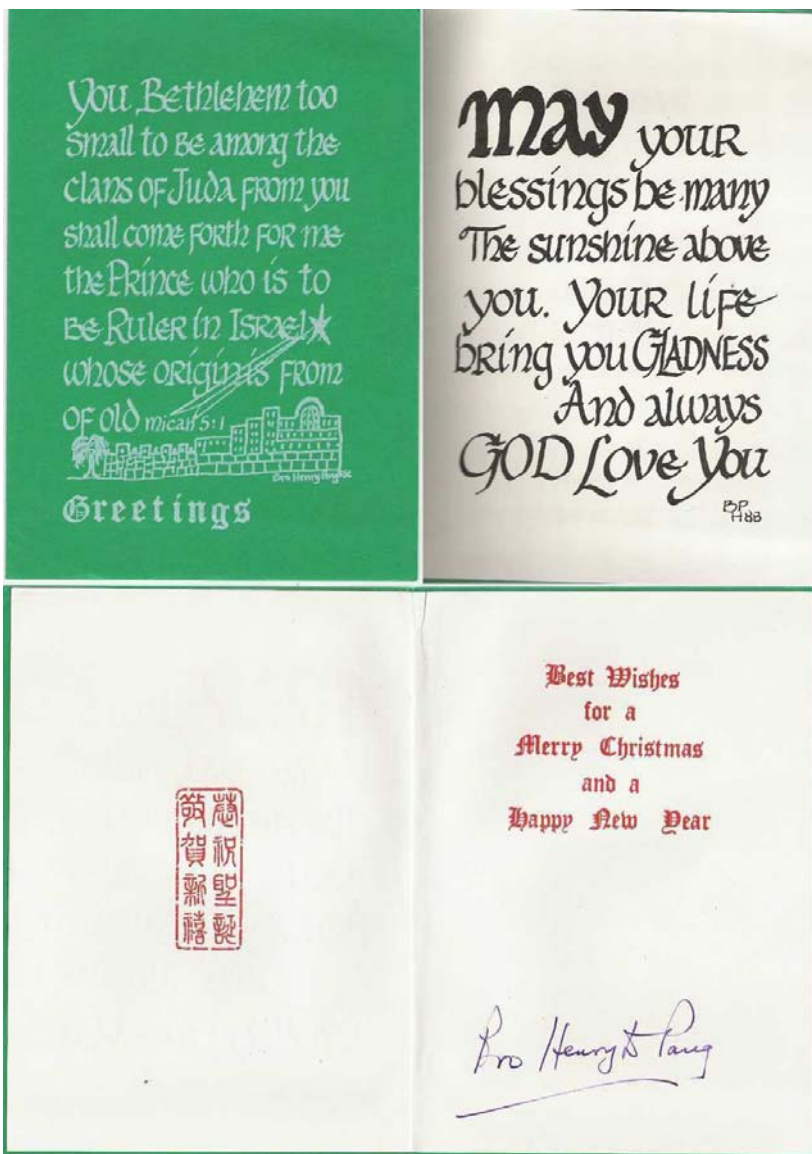 You Bethlehem too
small to be among the
clans of Juda from you
shall come forth for me
the Prince who is to
be Ruler in Israel
whose origin is from
of old micah 5:1
Bro Henry Pang fsc
Greetings
May your
blessings be many
The sunshine above
you. Your life
bring you GLADNESS
And always
GOD Love You
BP
H88
恭祝聖誕
敬賀新禧
Best Wishes
for a
Merry Christmas
and a
Happy New Year
Bro Henry D Pang